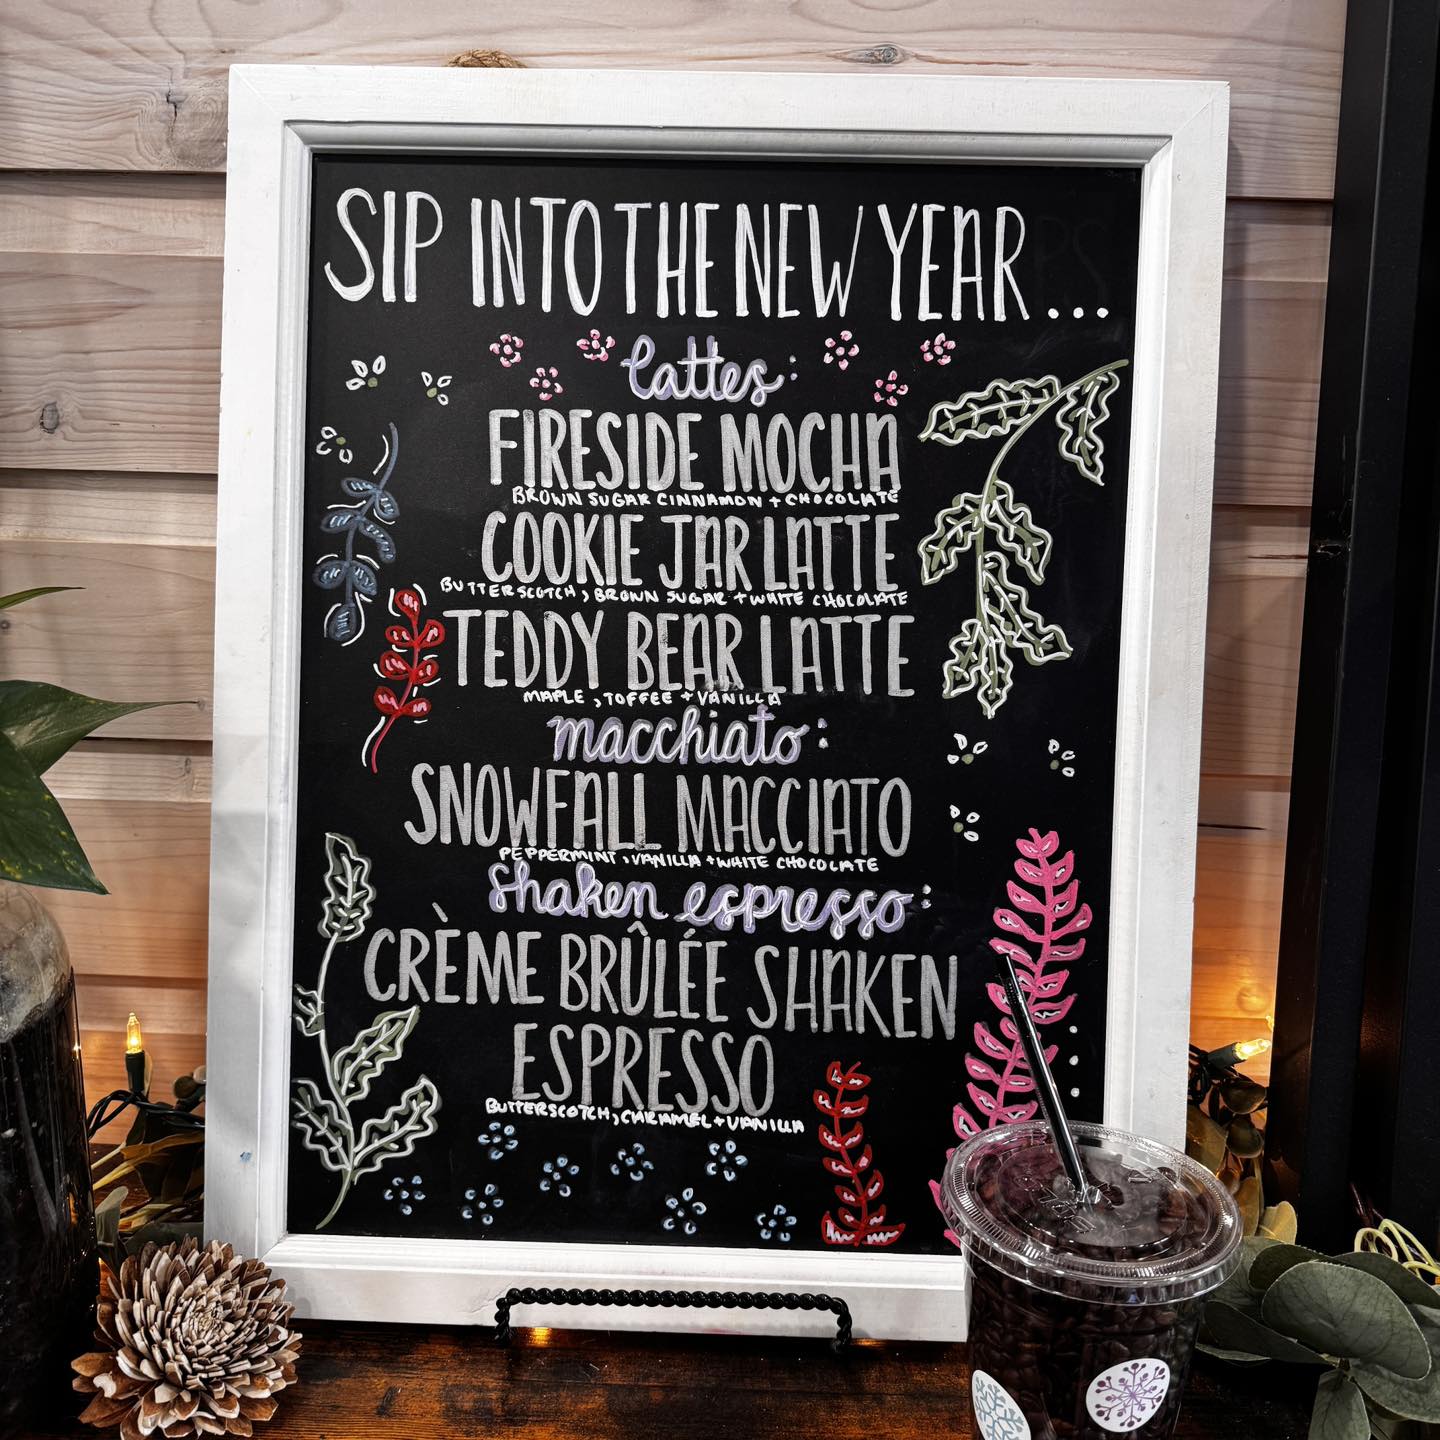 SIP INTO THE NEW YEAR...
lattes:
FIRESIDE MOCHA
BROWN SUGAR CINNAMON + CHOCOLATE
COOKIE JAR LATTE
BUTTERSCOTCH, BROWN SUGAR + WHITE CHOCOLATE
TEDDY BEAR LATTE
MAPLE, TOFFEE + VANILLA
macchiato:
SNOWFALL MACCIATO
PEPPERMINT, VANILLA + WHITE CHOCOLATE
shaken espresso:
CRÈME BRÛLÉE SHAKEN
ESPRESSO
BUTTERSCOTCH, CARAMEL + VANILLA